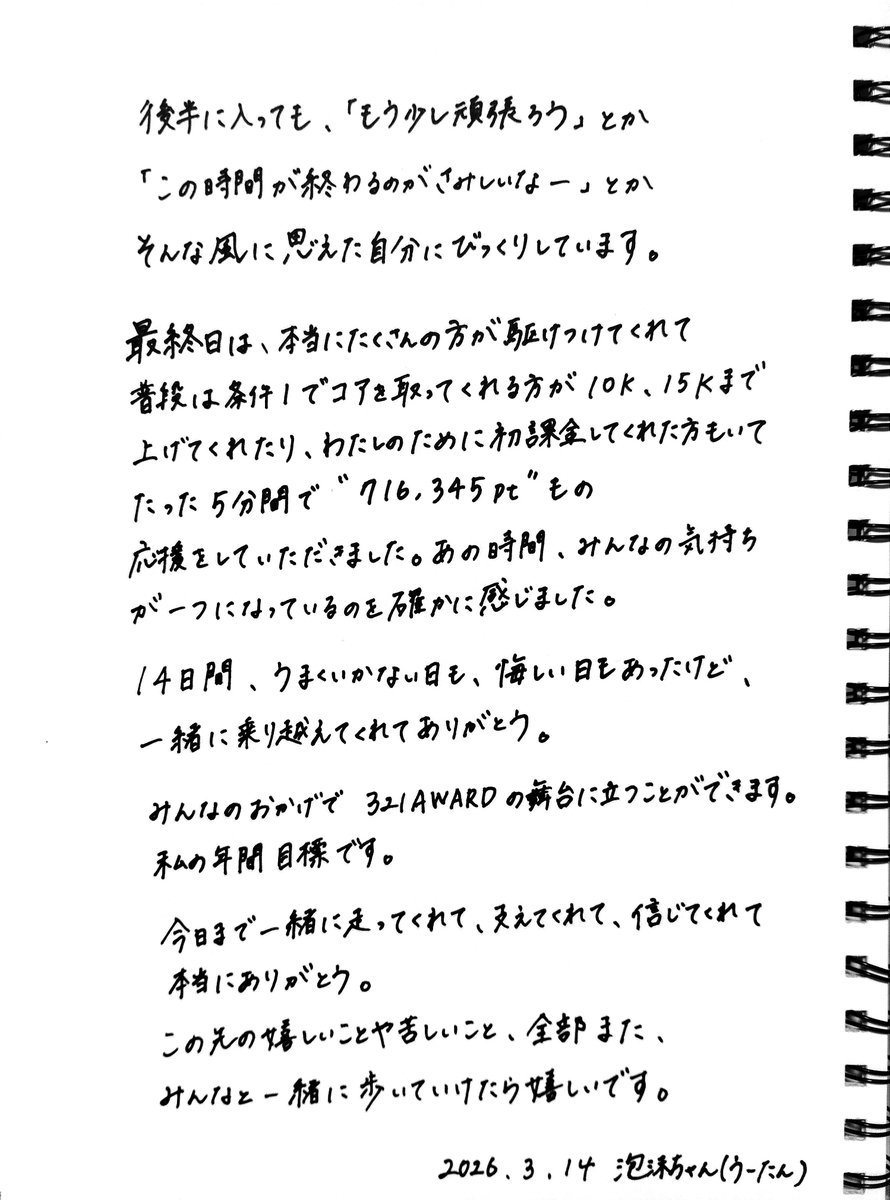 後半に入っても、「もう少し頑張ろう」とか
「この時間が終わるのがさみしいなー」とか
そんな風に思えた自分にびっくりしています。
最終日は、本当にたくさんの方が駆けつけてくれて
普段は条件1でコアを取ってくれる方が10K、15Kまで
上げてくれたり、わたしのために初課金してくれた方もいて
たった5分間で"716,345pt"もの
応援をしていただきました。あの時間、みんなの気持ち
が一つになっているのを確かに感じました。
14日間、うまくいかない日も、悔しい日もあったけど、
一緒に乗り越えてくれてありがとう。
みんなのおかげで 321AWARDの舞台に立つことができます。
私の年間目標です。
今日まで一緒に走ってくれて、支えてくれて、信じてくれて
本当にありがとう。
この先の嬉しいことや苦しいこと、全部また、
みんなと一緒に歩いていけたら嬉しいです。
2026.3.14 泡沫ちゃん(うーたん)